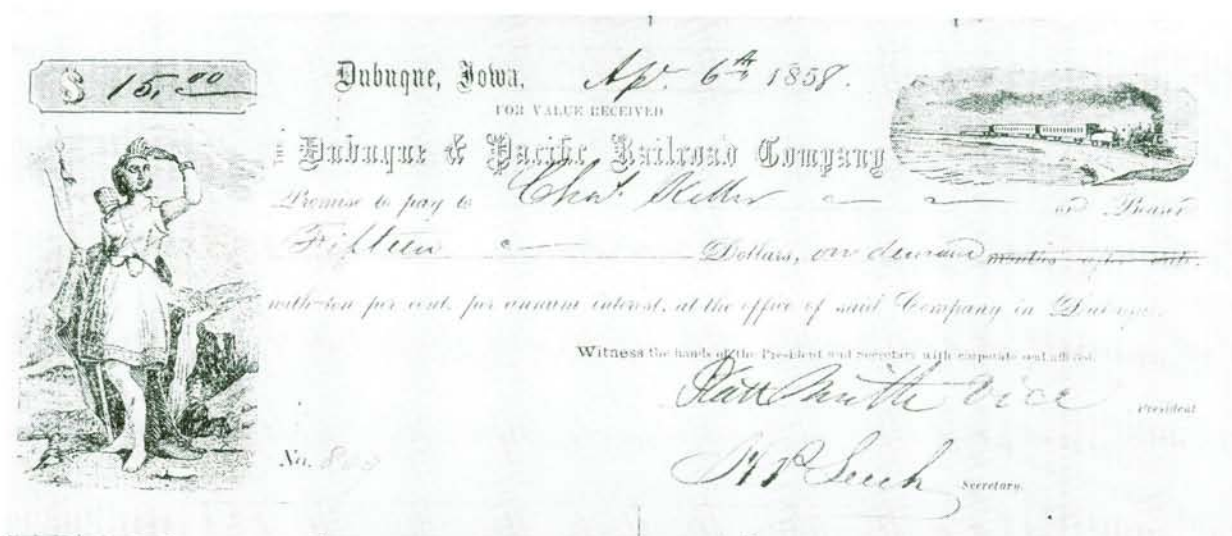 $ 15,00
Dubuque, Iowa, Apr. 6th 1858.
FOR VALUE RECEIVED
Dubuque & Pacific Railroad Company
Promise to pay to Chas. Keller and Bearer
Fifteen Dollars, on demand months after date.
with ten per cent. per annum interest, at the office of said Company in Dubuque
Witness the hands of the President and Secretary with corporate seal affixed.
Platt Smith Vice President
No.
Secretary.